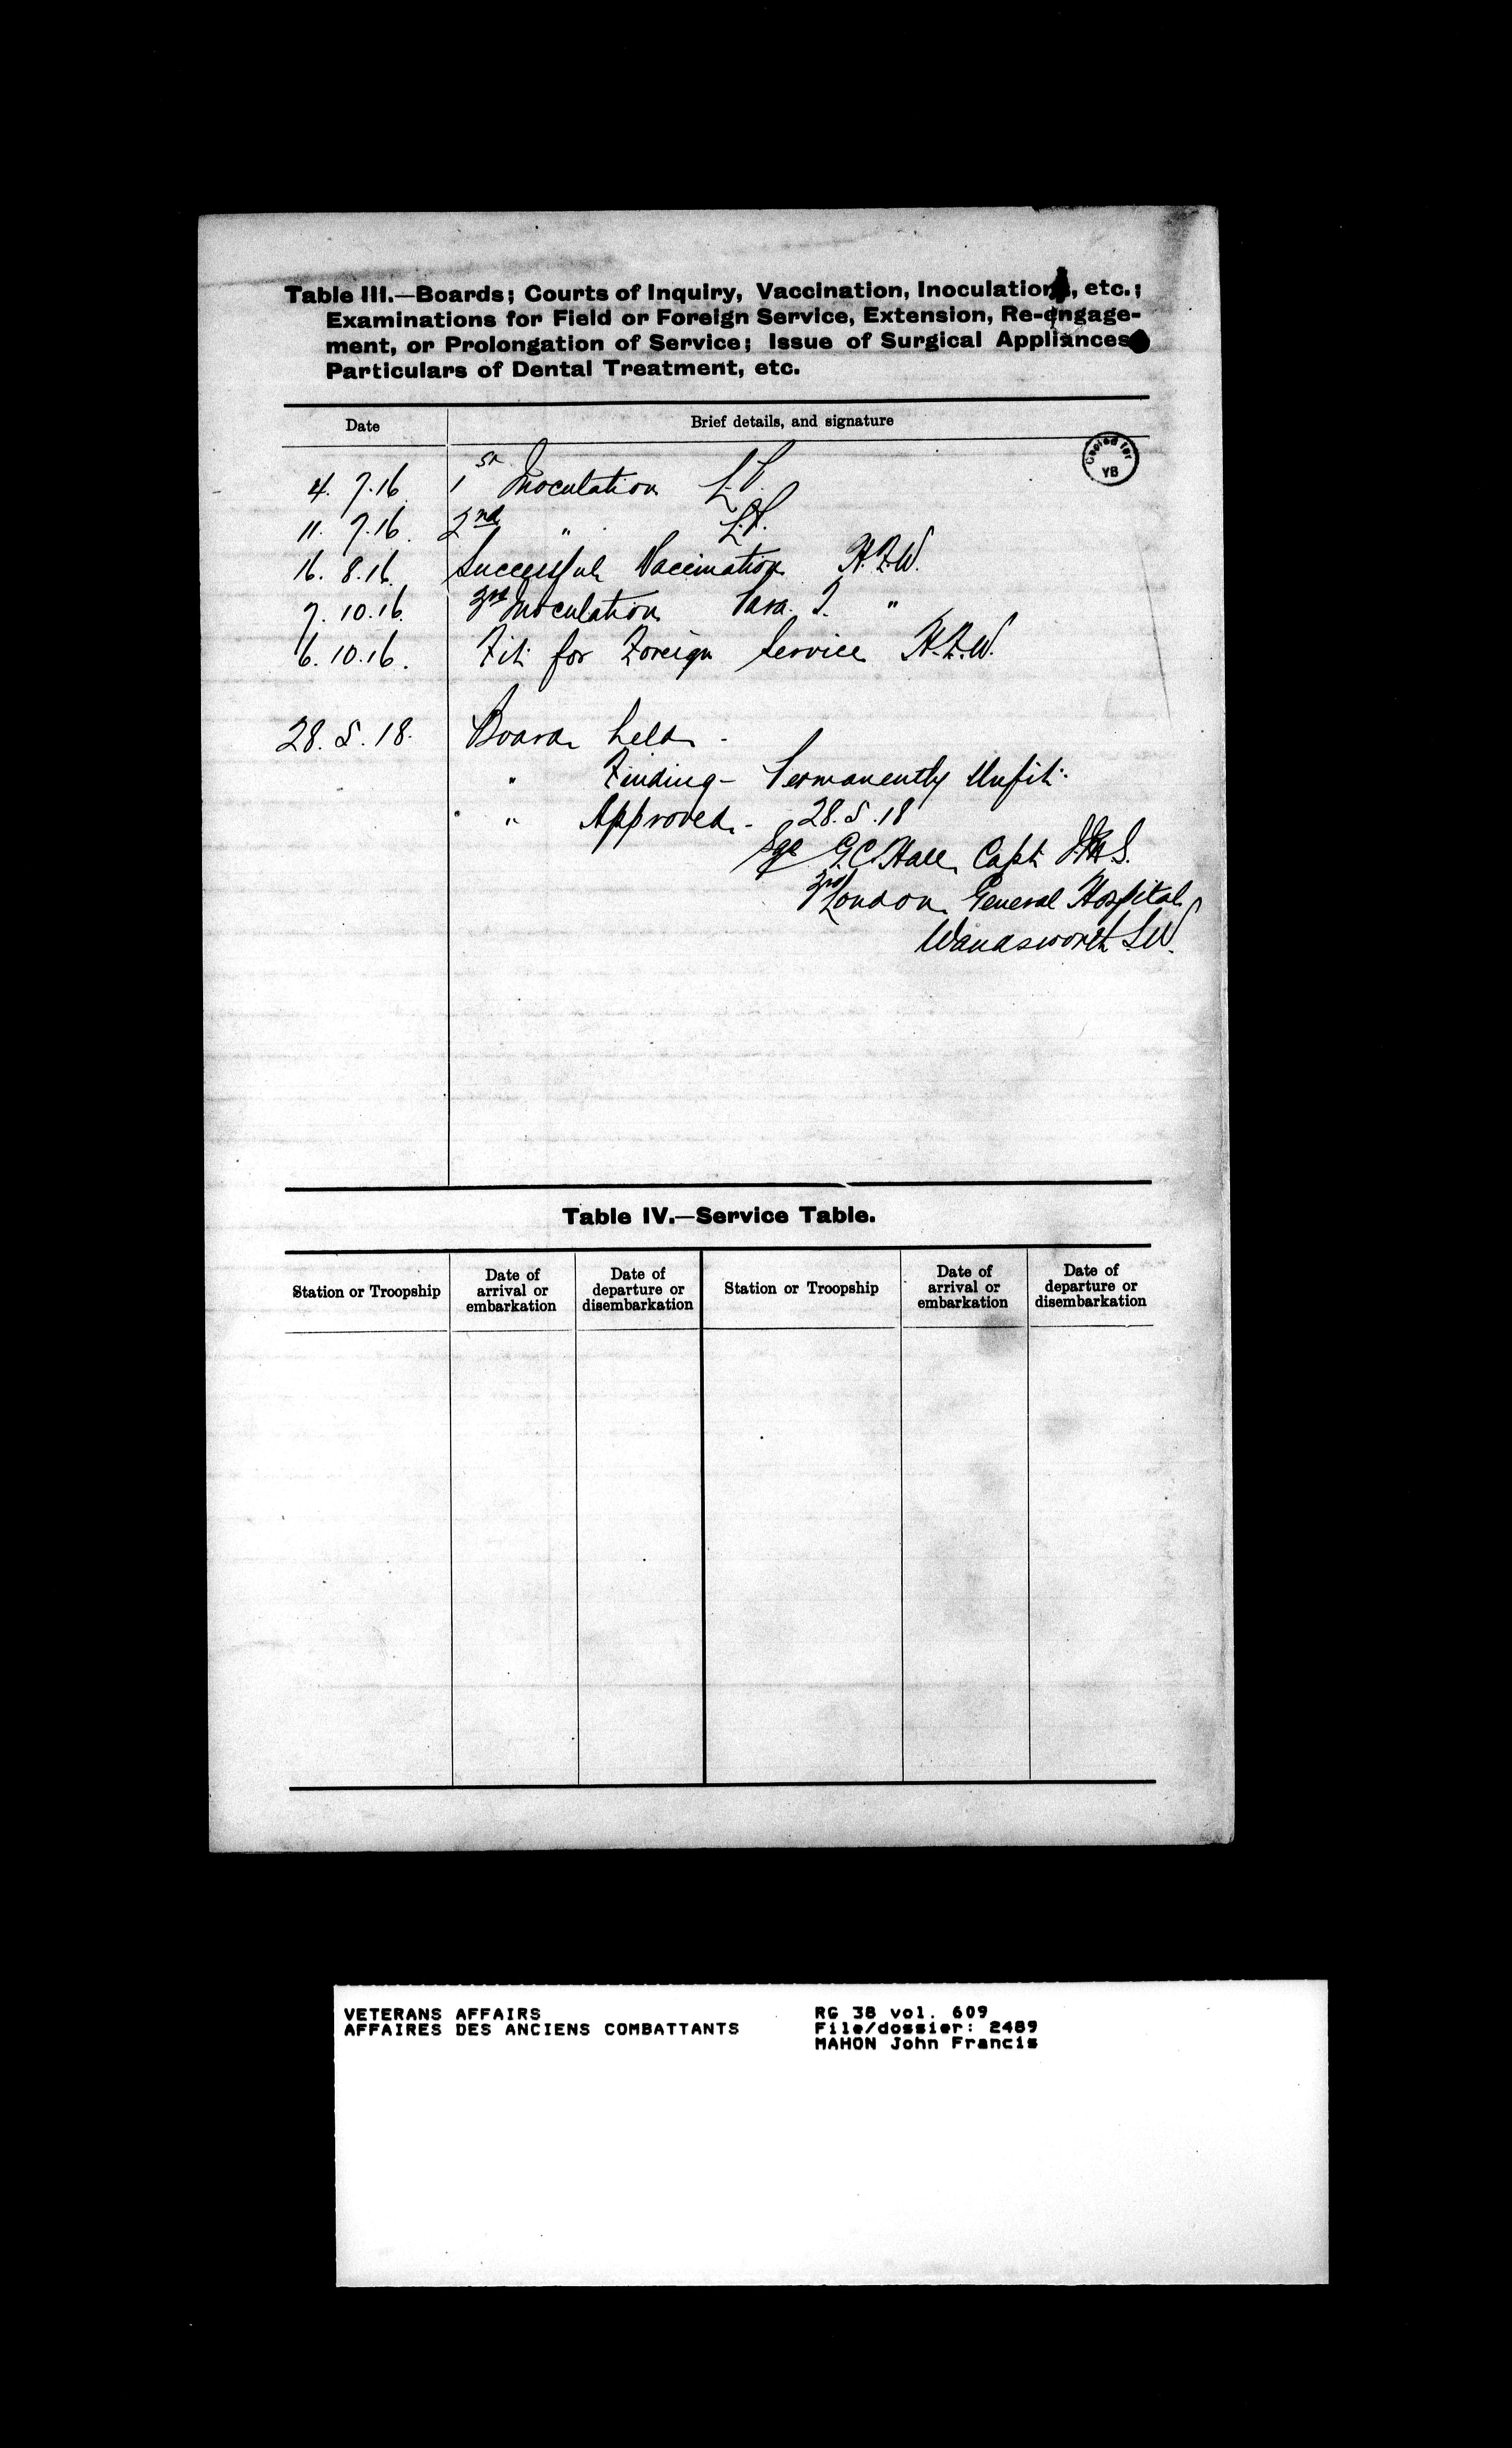 Table III.—Boards; Courts of Inquiry, Vaccination, Inoculations, etc.;
Examinations for Field or Foreign Service, Extension, Re-engage-
ment, or Prolongation of Service; Issue of Surgical Appliances
Particulars of Dental Treatment, etc.
Date Brief details, and signature
Copied for
YB
4. 7.16. 1st Inoculation
11. 7.16. 2nd "
16. 8.16. Successful Vaccination H.F.W.
7. 10.16. 3rd Inoculation Para. T. "
6. 10.16. Fit for Foreign Service H.F.W.
28. 5. 18. Board held -
" Finding - Permanently Unfit.
" Approved. - 28.5.18
Sgd G.C. Hall, Capt
3rd London General Hospital,
Wandsworth S.W.
Table IV.—Service Table.
Station or Troopship Date of arrival or embarkation Date of departure or disembarkation Station or Troopship Date of arrival or embarkation Date of departure or disembarkation
VETERANS AFFAIRS RG 38 vol. 609
AFFAIRES DES ANCIENS COMBATTANTS File/dossier: 2489
MAHON John Francis